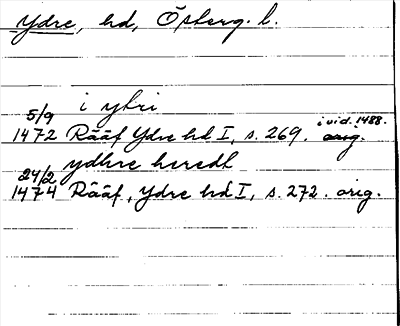 Ydre, hd, Österg. l.
i ydri
5/9
1472 Rääf Ydre hd I, s. 269. i vid. 1488. orig.
ydhre heredh
24/2
1474 Rääf, Ydre hd I, s. 272. orig.